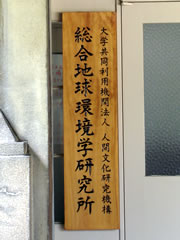 大学共同利用機関法人 人間文化研究機構
総合地球環境学研究所